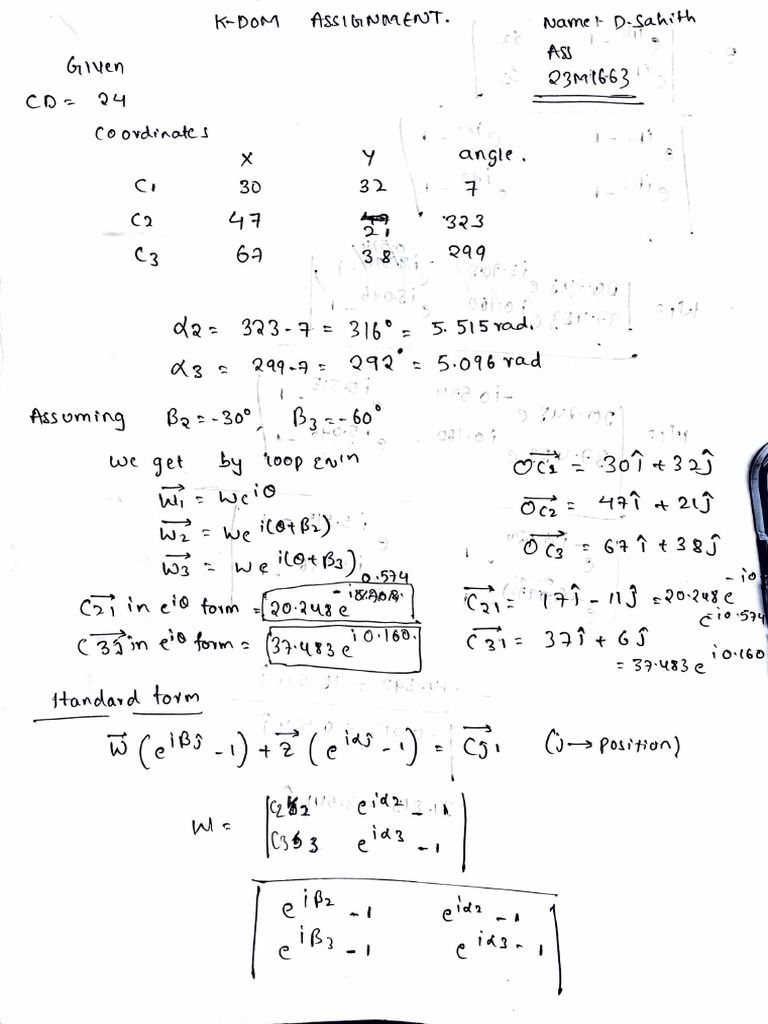 K-DOM ASSIGNMENT.
Name:- D. Sahith
Ass
23M1663
Given
CD = 24
Coordinates
X Y angle.
C1 30 32 7
C2 47 21 323
C3 67 38 299
α2 = 323-7 = 316° = 5.515 rad.
α3 = 299-7 = 292° = 5.096 rad
Assuming B2 = -30°, B3 = -60°
We get by loop
W1 = We^iθ
W2 = We^i(θ+β2)
W3 = We^i(θ+β3)
C21 in e^iθ form = 20.248 e^-i 0.574
C3j in e^iθ form = 37.483 e^i0.160.
OC1 = 30î + 32ĵ
OC2 = 47î + 21ĵ
OC3 = 67î + 38ĵ
C21 = 17î - 11ĵ = 20.248 e^-i0
e^i0.574
C31 = 37î + 6ĵ
= 37.483 e^i0.160
Standard form
W (e^iβj - 1) + Z (e^iαj - 1) = Cj1 (j → position)
W =
C2 e^iα2 - 1
C3 e^iα3 - 1
e^iβ2 - 1 e^iα2 - 1
e^iβ3 - 1 e^iα3 - 1